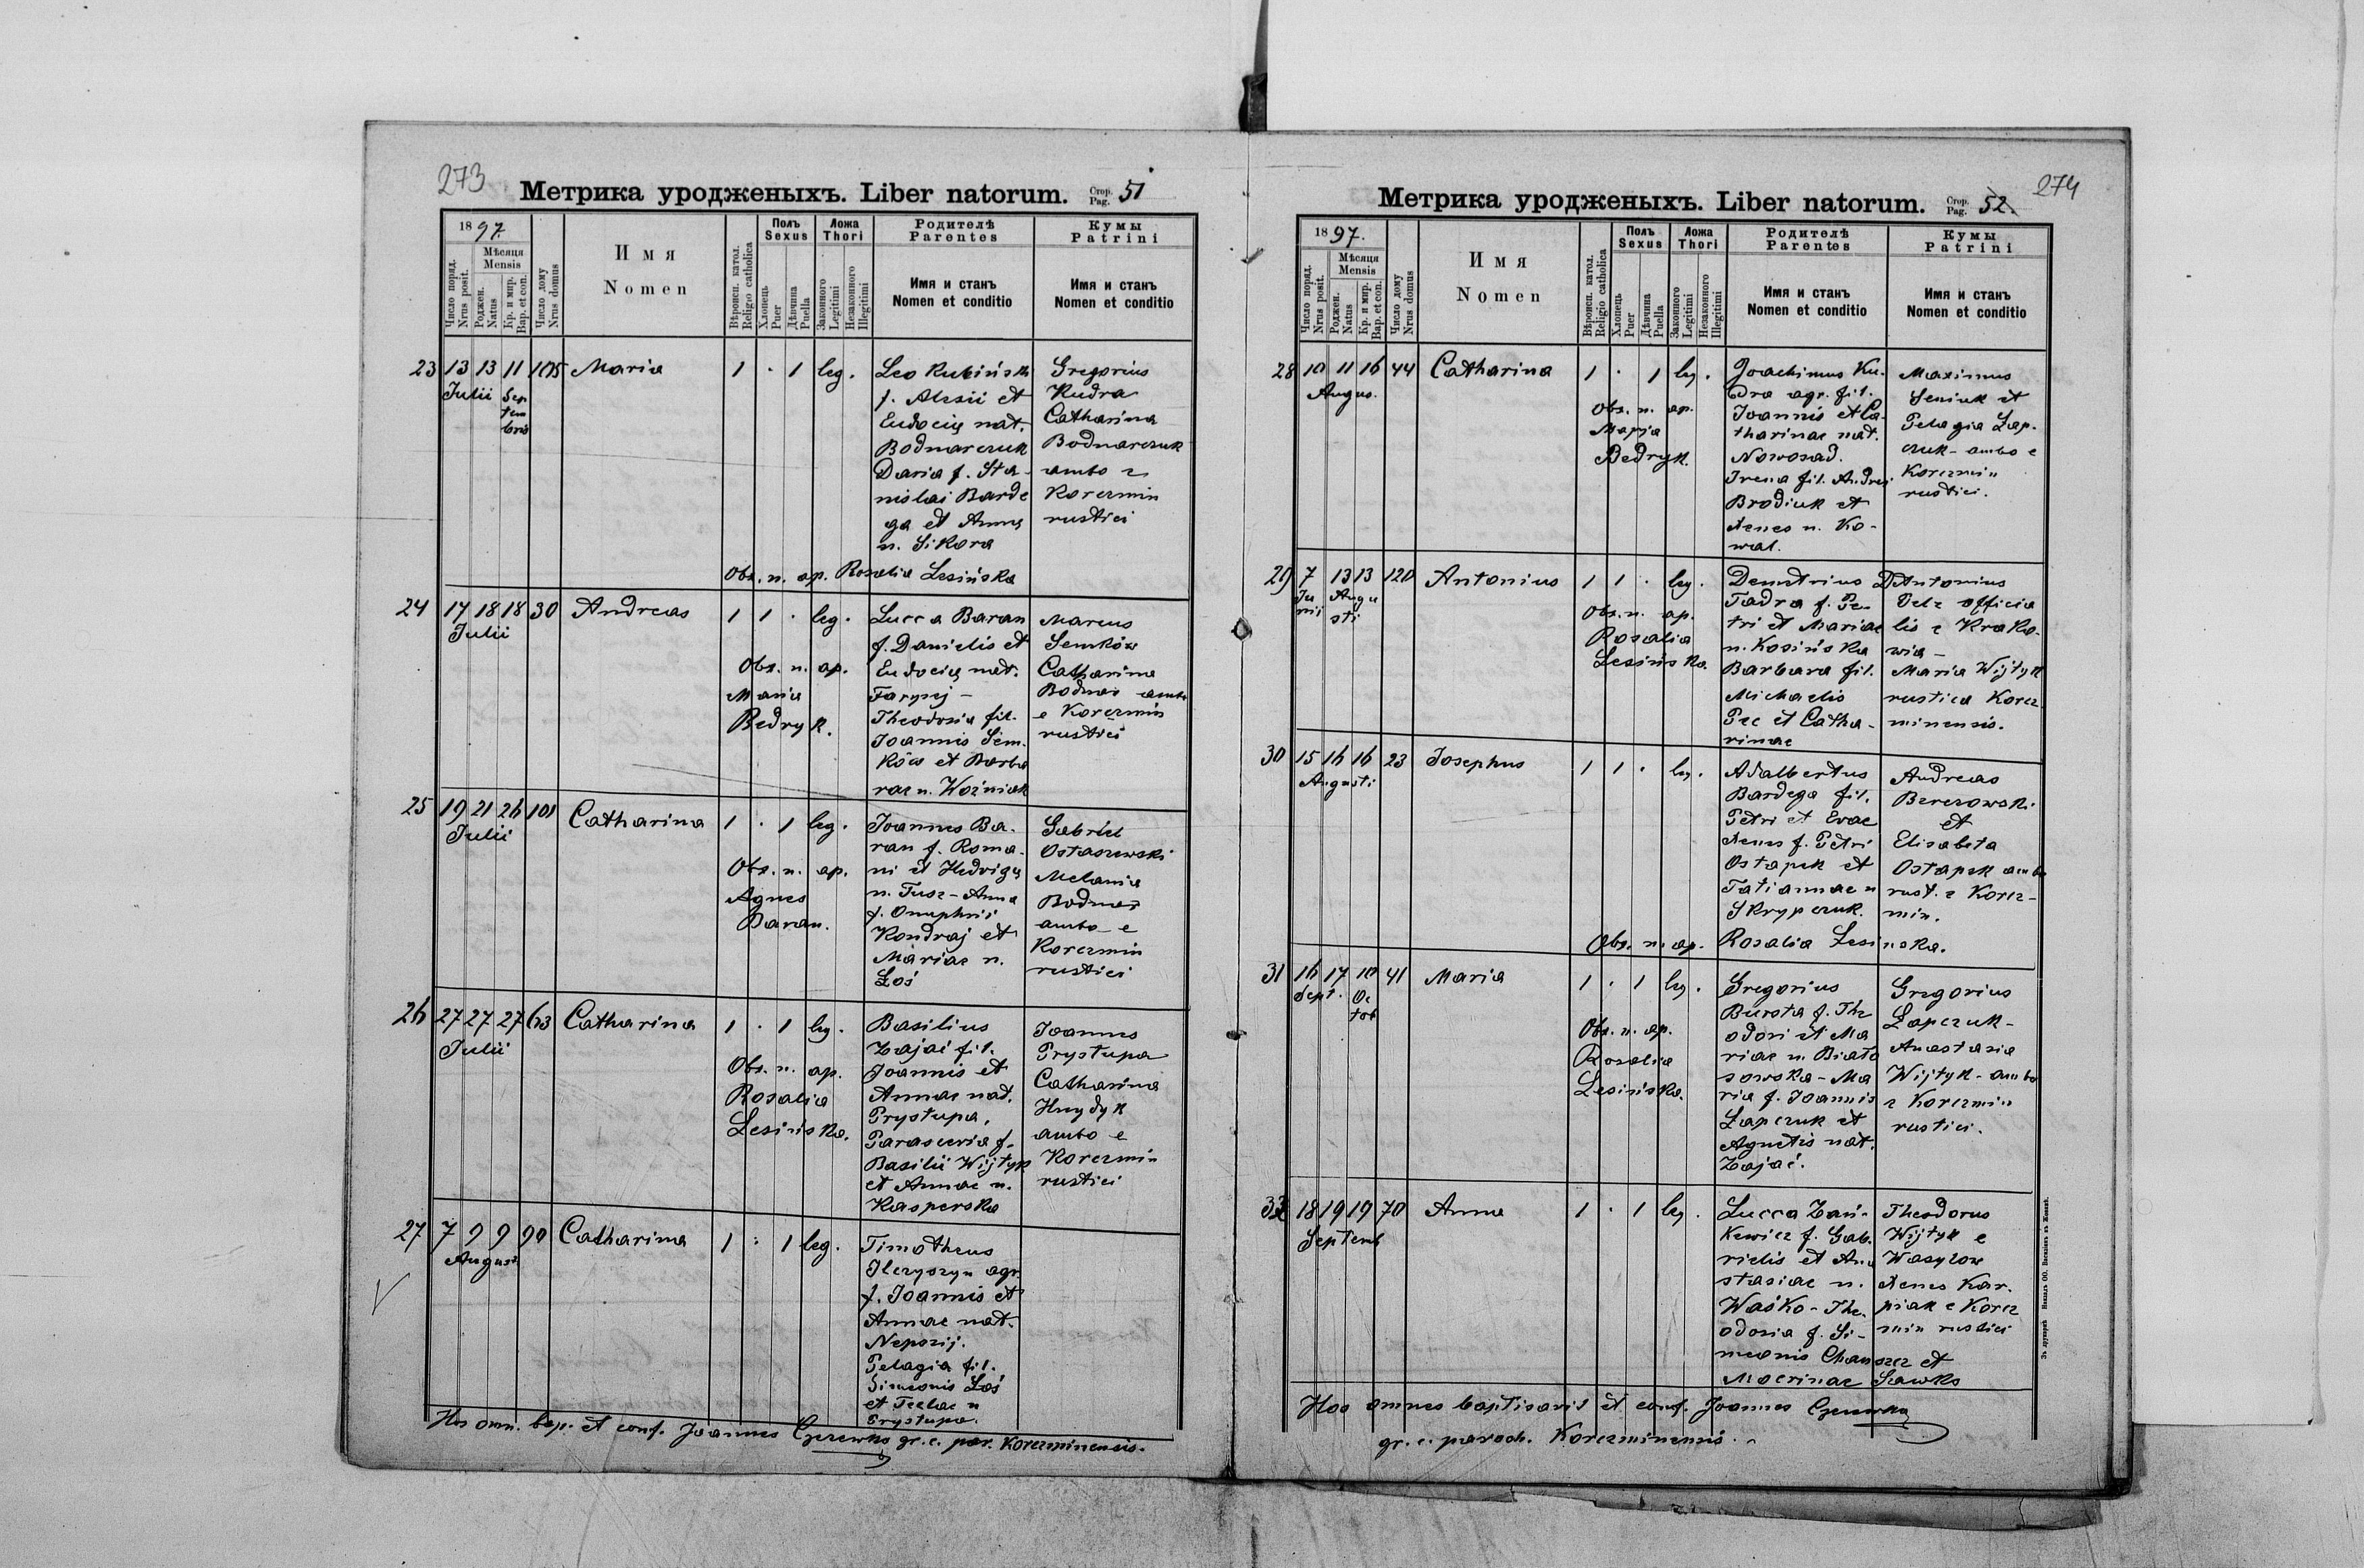 273
Метрика уродженыхъ. Liber natorum. Стор. Pag. 51
1897.
Число поряд. Nrus posit.
Мѣсяця Mensis
Роджен. Natus
Кр. и мир. Bap. et con.
Число дому Nrus domus
Имя
Nomen
Вѣроисп. катол. Religio catholica
Полъ Sexus
Хлопець Puer
Дѣвчина Puella
Ложа Thori
Законного Legitimi
Незаконного Illegitimi
Родителѣ
Parentes
Имя и станъ
Nomen et conditio
Кумы
Patrini
Имя и станъ
Nomen et conditio
23 13 13 11 105 Maria 1 · 1 leg.
Julii Septembris
Leo Rubińsk
f. Alexii et
Eudocię nat.
Bodnarczuk
Daria f. Sta-
nislai Barde
ga et Annę
n. Sikora
Gregorius
Kudra
Catharina
Bodnarczuk
ambo e
Korczmin
rustici
Obs. n. ap. Rosalia Lesińska
24 17 18 18 30 Andreas 1 1 · leg.
Julii
Obs. n. ap.
Maria
Bedryk.
Lucca Baran
f. Danielis et
Eudocię nat.
Theodosia fil.
Joannis Sem-
ków et Barba
rae n. Woźniak
Marcus
Semków
Catharina
Bodnar ambo
e Korczmin
rustici
25 19 21 26 101 Catharina 1 · 1 leg.
Julii
Obs. n. ap.
Agnes
Baran.
Joannes Ba-
ran f. Roma-
ni et Hedvigę
n. Tusz - Anna
f. Onuphrii
Kondraj et
Mariae n.
Łoś
Gabriel
Ostaszewski
Melania
Bodnar
ambo e
Korczmin
rustici
26 27 27 27 63 Catharina 1 · 1 leg.
Julii
Obs. n. ap.
Rosalia
Lesińska.
Basilius
Zając fil.
Joannis et
Annae nat.
Prystupa.
Parascevia f.
Basilii Wijtyk
et Annae n.
Kasperska
Joannes
Prystupa
Catharina
Hnydyk
ambo e
Korczmin
rustici
27 7 9 9 90 Catharina 1 · 1 leg.
August.
Timotheus
agr.
f. Joannis et
Annae nat.
Nepszij.
Pelagia fil.
Simeonis Łoś
et Teclae n
Prystupa.
Hos omn. bap. et conf. Joannes Czerewko gr. c. par. Korczminensis.
274
Метрика уродженыхъ. Liber natorum. Стор. Pag. 52.
1897.
Число поряд. Nrus posit.
Мѣсяця Mensis
Роджен. Natus
Кр. и мир. Bap. et con.
Число дому Nrus domus
Имя
Nomen
Вѣроисп. катол. Religio catholica
Полъ Sexus
Хлопець Puer
Дѣвчина Puella
Ложа Thori
Законного Legitimi
Незаконного Illegitimi
Родителѣ
Parentes
Имя и станъ
Nomen et conditio
Кумы
Patrini
Имя и станъ
Nomen et conditio
28 10 11 16 44 Catharina 1 · 1 leg.
Augus.
Obs. n. ap.
Maria
Bedryk.
Joachimus Ku-
dra agr. fil.
Joannis et Ca-
tharinae nat.
Nowosad.
Irena fil. Andrei
Brodiuk et
Xenes n. Ko-
wal.
Maximus
Seniuk et
Pelagia Łap-
czuk - ambo e
Korczmin
rustici.
29 7 13 13 120 Antonius 1 1 · leg.
Junii Augusti
Obs. n. ap.
Rosalia
Lesińska.
Demetrius
Fadra f. Pe-
tri et Mariae
n. Kosińska
Barbara fil.
Michaelis
Pec et Catha-
rinae
Antonius
Pelz officia
lis e Krako-
wia -
Maria Wijtyk
rustica Korcz
minensis.
30 15 16 16 23 Josephus 1 1 · leg.
Augusti
Adalbertus
Bardega fil.
Petri et Evae
Xenes f. Petri
Ostapek et
Tatiannae n
Skrypczuk.
Andreas
Berezowski
et
Elisabeta
Ostapek ambo
rust. e Korcz-
min.
Obs. n. ap. Rosalia Lesinska.
31 16 17 10 41 Maria 1 · 1 leg.
Sept. Octob
Obs. n. ap.
Rosalia
Lesińska.
Gregorius
Bursta f. The
odori et Ma
riae n. Biało
sowska - Ma
ria f. Joannis
Łapczuk et
Agnetis nat.
Zając.
Gregorius
Łapczuk -
Anastasia
Wijtyk - ambo
e Korczmin
rustici.
32 18 19 19 70 Anna 1 · 1 leg.
Septemb
Lucca Zań-
kewicz f. Gab-
rielis et Ana
stasiae n.
Waśko - The-
odosia f. Si-
meonis Chanszcz et
Macrinae Sawko
Theodorus
Wijtyk e
Wasylow
Xenes Kar-
piak e Korcz
min rustici
Hos omnes baptisavit et conf. Joannes Czerewko
gr. c. paroch. Korczminensis.